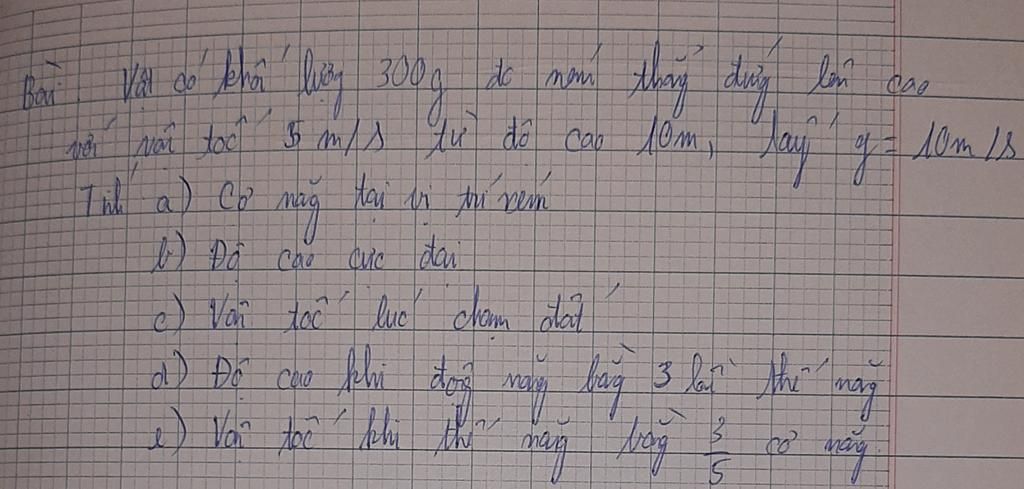 Bài: Vật có khối lượng 300g đc ném thẳng đứng lên cao
với vận tốc 5 m/s từ độ cao 10m, lấy g = 10m/s
Tính a) Cơ năng tại vị trí ném
b) Độ cao cực đại
c) Vận tốc lúc chạm đất
d) Độ cao khi động năng bằng 3 lần thế năng
e) Vận tốc khi thế năng bằng 3/5 cơ năng.